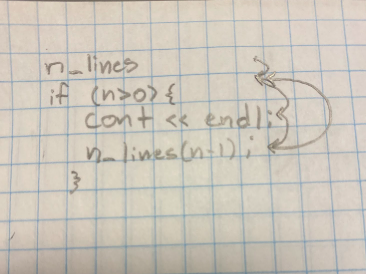 n_lines
if (n>0) {
cout << endl;
n_lines(n-1);
}